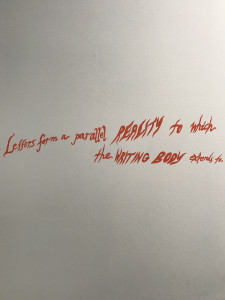 Letters form a parallel REALITY to which
the WRITING BODY extends to.